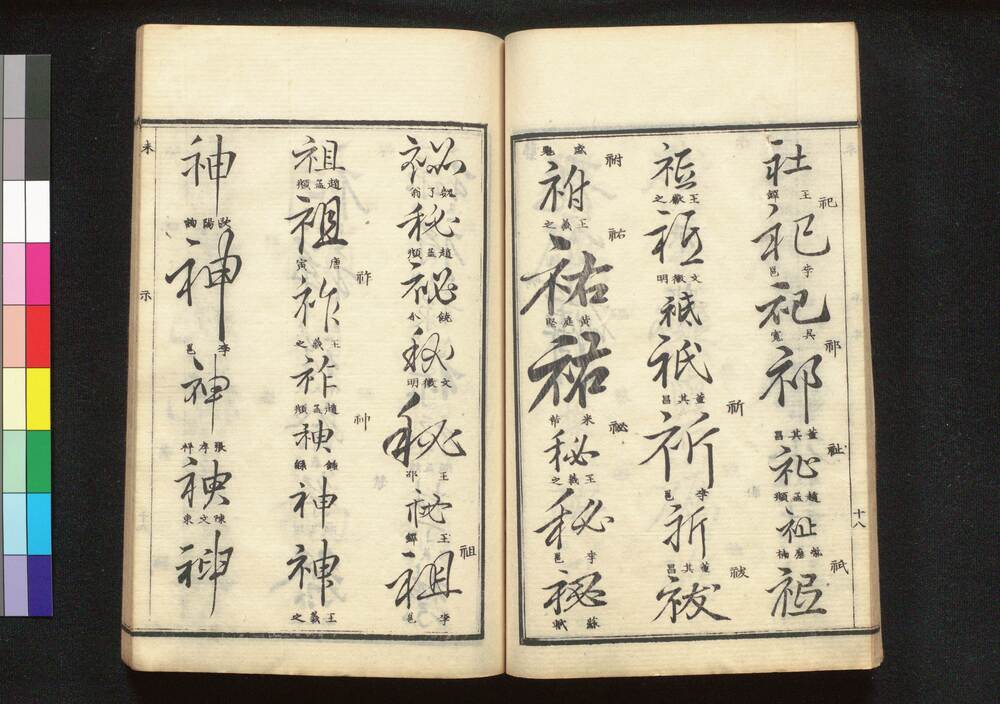 社
王鐸
祀
祀
李邕
祀
吳寬
祁
祁
董其昌
祉
祉
趙孟頫
祉
祇
祇
十八
祇
王獻之
祇
文徵明
祗
祗
董其昌
祈
祈
李邕
祈
董其昌
祓
祓
祔
祔
王羲之
祐
祐
黃庭堅
祐
米芾
祕
秘
王羲之
秘
李邕
秘
蘇軾
祕
秘
趙孟頫
祕
秘
文徵明
秘
王
秘
王鐸
祖
祖
李邕
祖
趙孟頫
祖
唐寅
祚
祚
王羲之
祚
趙孟頫
神
神
鍾繇
神
神
王羲之
神
歐陽詢
神
李邕
神
神
陳文東
神
未
示